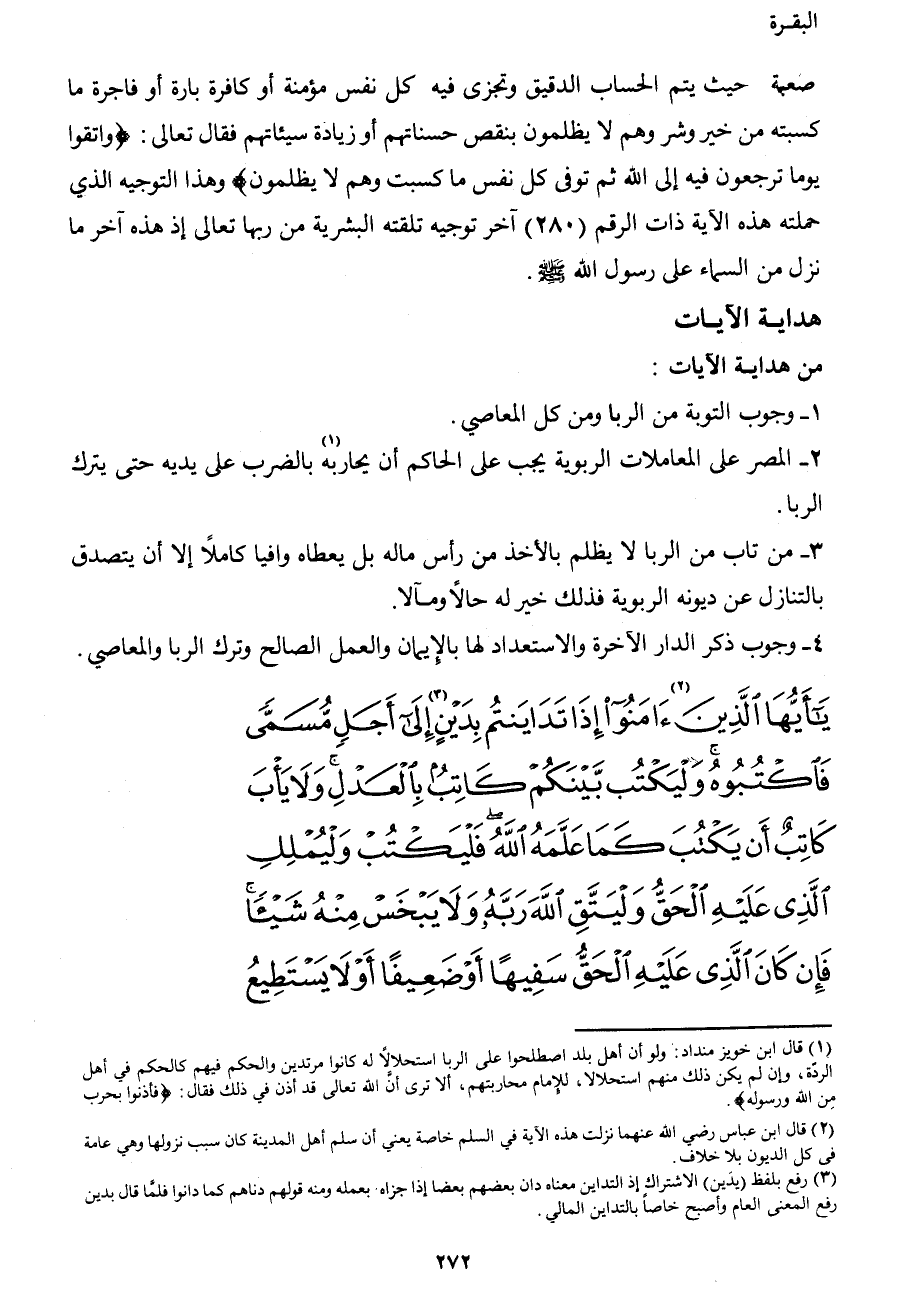 البقـرة
صعبة حيث يتم الحساب الدقيق وتجزى فيه كل نفس مؤمنة أو كافرة بارة أو فاجرة ما
كسبته من خير وشر وهم لا يظلمون بنقص حسناتهم أو زيادة سيئاتهم فقال تعالى : ﴿واتقوا
يوما ترجعون فيه إلى الله ثم توفى كل نفس ما كسبت وهم لا يظلمون﴾ وهذا التوجيه الذي
حملته هذه الآية ذات الرقم (٢٨٠) آخر توجيه تلقته البشرية من ربها تعالى إذ هذه آخر ما
نزل من السماء على رسول الله ﷺ .
هدايـة الآيـات
من هدايـة الآيات :
١ـ وجوب التوبة من الربا ومن كل المعاصي .
٢ـ المصر على المعاملات الربوية يجب على الحاكم أن يحاربه(١) بالضرب على يديه حتى يترك
الربا .
٣ـ من تاب من الربا لا يظلم بالأخذ من رأس ماله بل يعطاه وافيا كاملًا إلا أن يتصدق
بالتنازل عن ديونه الربوية فذلك خير له حالًا ومـآلا.
٤ـ وجوب ذكر الدار الآخرة والاستعداد لها بالإيمان والعمل الصالح وترك الربا والمعاصي .
يَٰٓأَيُّهَا ٱلَّذِينَ ءَامَنُوٓا۟(٢) إِذَا تَدَايَنتُم بِدَيْنٍ(٣) إِلَىٰٓ أَجَلٍ مُّسَمًّى
فَٱكْتُبُوهُ ۚ وَلْيَكْتُب بَّيْنَكُمْ كَاتِبٌۢ بِٱلْعَدْلِ ۚ وَلَا يَأْبَ
كَاتِبٌ أَن يَكْتُبَ كَمَا عَلَّمَهُ ٱللَّهُ ۖ فَلْيَكْتُبْ وَلْيُمْلِلِ
ٱلَّذِى عَلَيْهِ ٱلْحَقُّ وَلْيَتَّقِ ٱللَّهَ رَبَّهُۥ وَلَا يَبْخَسْ مِنْهُ شَيْـًٔا ۚ
فَإِن كَانَ ٱلَّذِى عَلَيْهِ ٱلْحَقُّ سَفِيهًا أَوْ ضَعِيفًا أَوْ لَا يَسْتَطِيعُ
(١) قال ابن خويز منداد: ولو أن أهل بلد اصطلحوا على الربا استحلالًا له كانوا مرتدين والحكم فيهم كالحكم في أهل
الردّة، وإن لم يكن ذلك منهم استحلالا، للإمام محاربتهم، ألا ترى أنّ الله تعالى قد أذن في ذلك فقال : ﴿فأذنوا بحرب
مِن الله ورسوله﴾ .
(٢) قال ابن عباس رضي الله عنهما نزلت هذه الآية في السلم خاصة يعني أن سلم أهل المدينة كان سبب نزولها وهي عامة
في كل الديون بلا خلاف .
(٣) رفع بلفظ (بدَين) الاشتراك إذ التداين معناه دان بعضهم بعضا إذا جزاه بعمله ومنه قولهم دناهم كما دانوا فلمَّا قال بدين
رفع المعنى العام وأصبح خاصاً بالتداين المالي .
٢٧٢